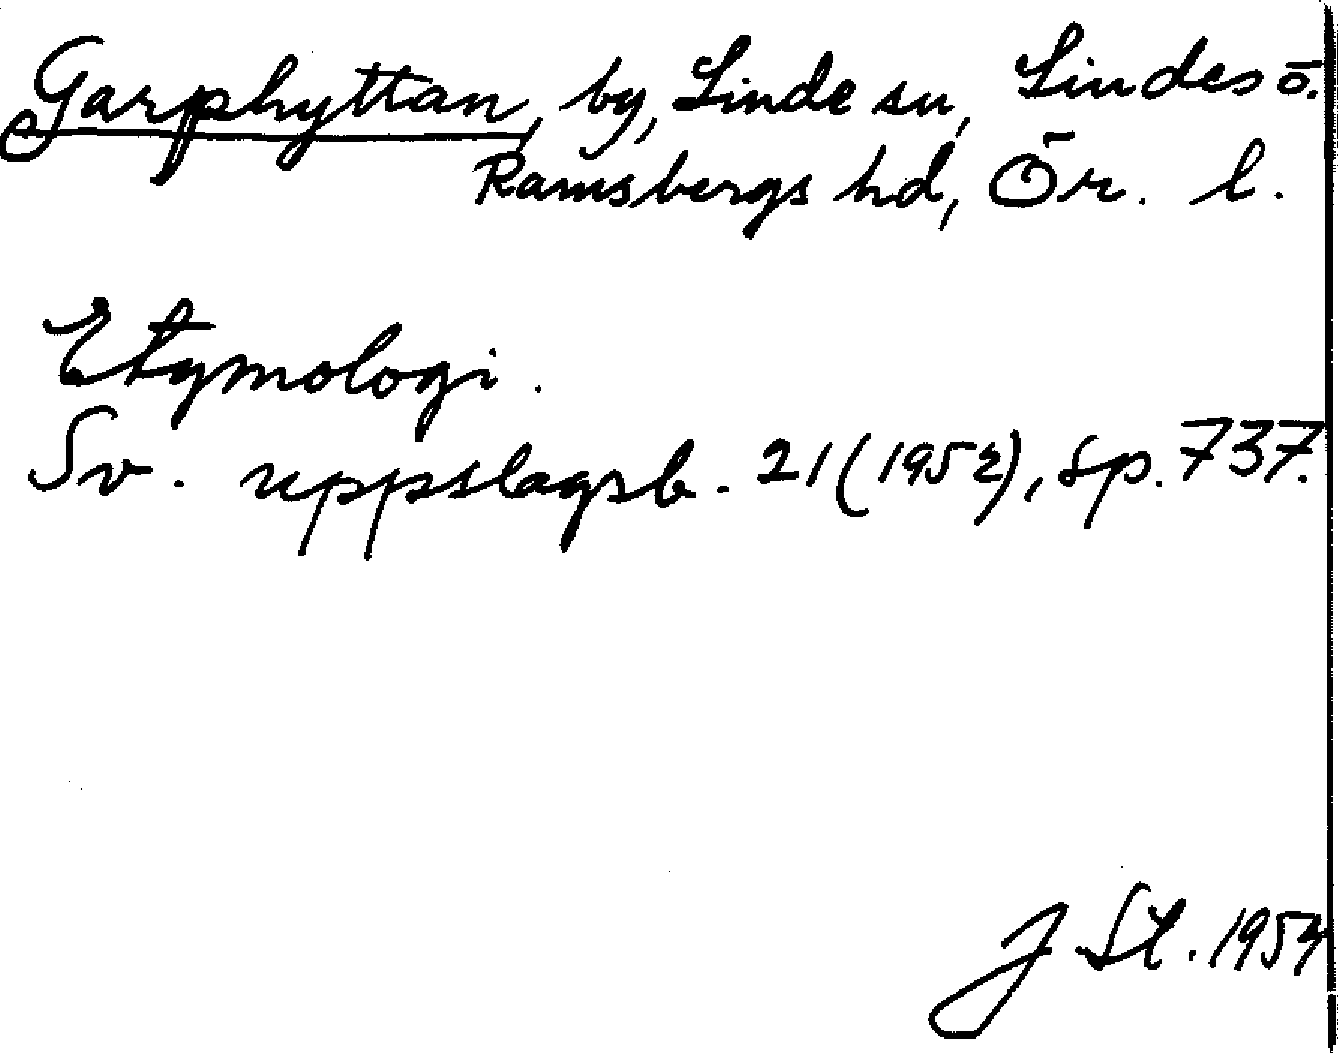 Garphyttan, by, Linde sn, Lindes ö.
Ramsbergs hd, Ör. l.
Etymologi.
Sv. uppslagsb. 21 (1952), sp. 737.
J St. 1954